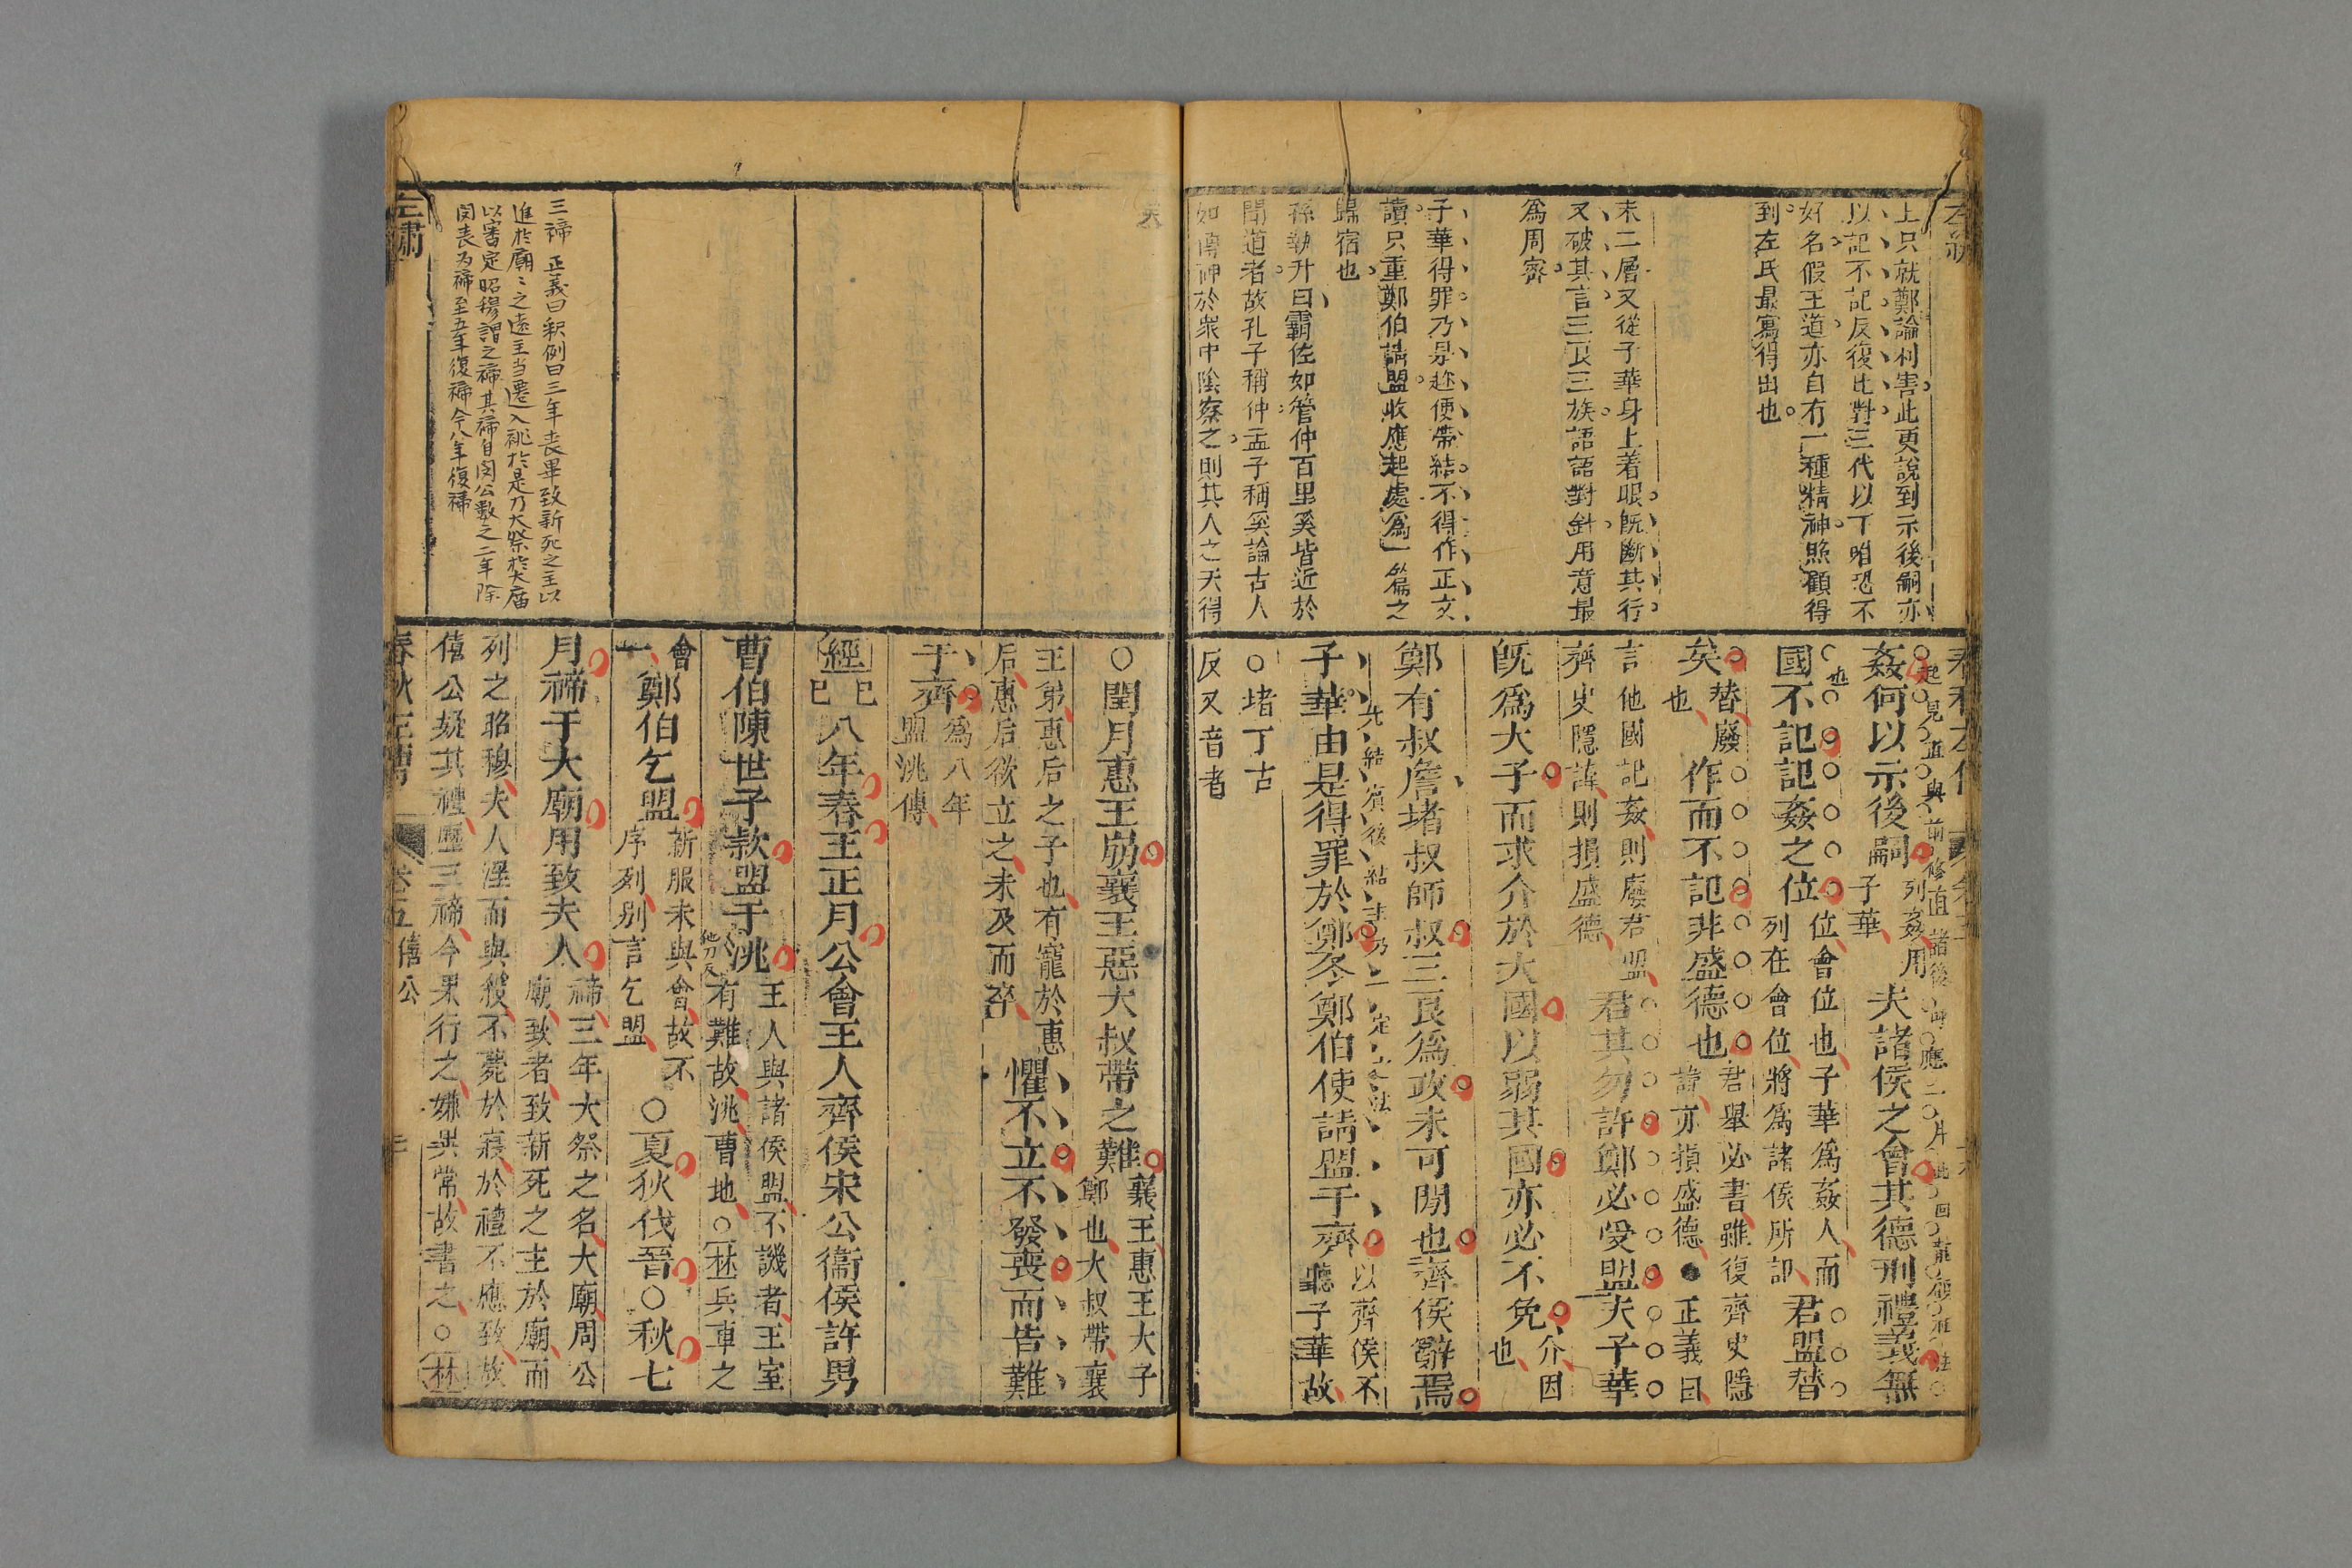 上只就鄭論利害此更說到示後嗣亦
以記不記反復比對三代以下咱恐不
好名假王道亦自有一種精神照顧得
到左氏最寫得出也
末二層又從子華身上著眼旣斷其行
又破其言三良三族語語對針用意最
爲周密
子華得罪乃是趂便帶結不得作正文
讀只重鄭伯請盟收應起處爲一篇之
歸宿也
孫執升曰霸佐如管仲百里奚皆近於
聞道者故孔子稱仲孟子稱奚論古人
如傳神於衆中陰察之則其人之天得
姦何以示後嗣列姦用子華夫諸侯之會其德刑禮義無
國不記記姦之位位會位也子華爲姦人而列在會位將爲諸侯所記君盟替
矣替廢也作而不記非盛德也君舉必書雖復齊史隱諱亦損盛德●正義曰
言他國記姦則廢君盟齊史隱諱則損盛德君其勿許鄭必受盟夫子華
旣爲大子而求介於大國以弱其國亦必不免介因也
鄭有叔詹堵叔師叔三良爲政未可間也齊侯辭焉
子華由是得罪於鄭冬鄭伯使請盟于齊以齊侯不聽子華故
○堵丁古反又音者
○閏月惠王崩襄王惡大叔帶之難襄王惠王大子鄭也大叔帶襄
王弟惠后之子也有寵於惠后惠后欲立之未及而卒懼不立不發喪而告難
于齊爲八年盟洮傳
經己巳八年春王正月公會王人齊侯宋公衞侯許男
曹伯陳世子款盟于洮王人與諸侯盟不譏者王室有難故洮曹地○林兵車之
會一鄭伯乞盟新服未與會故不序列別言乞盟○夏狄伐晉○秋七
月禘于大廟用致夫人禘三年大祭之名大廟周公廟致者致新死之主於廟而
列之昭穆夫人淫而與殺不薨於寢於禮不應致故
僖公疑其禮歷三禘今果行之嫌異常故書之○林
三禘 正義曰釈例曰三年喪畢致新死之主以
進於廟〻之遠主当遷入祧於是乃大祭於大廟
以審定昭穆謂之禘其禘自閔公數之二年除
閔喪为禘至五年復禘今八年復禘
左繡
春秋左傳 卷五 僖公